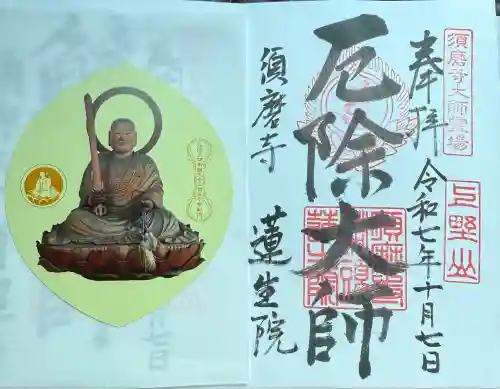 須磨寺大師霊場
奉拝
令和七年十月七日
上野山
厄除大師
須磨寺
蓮生院